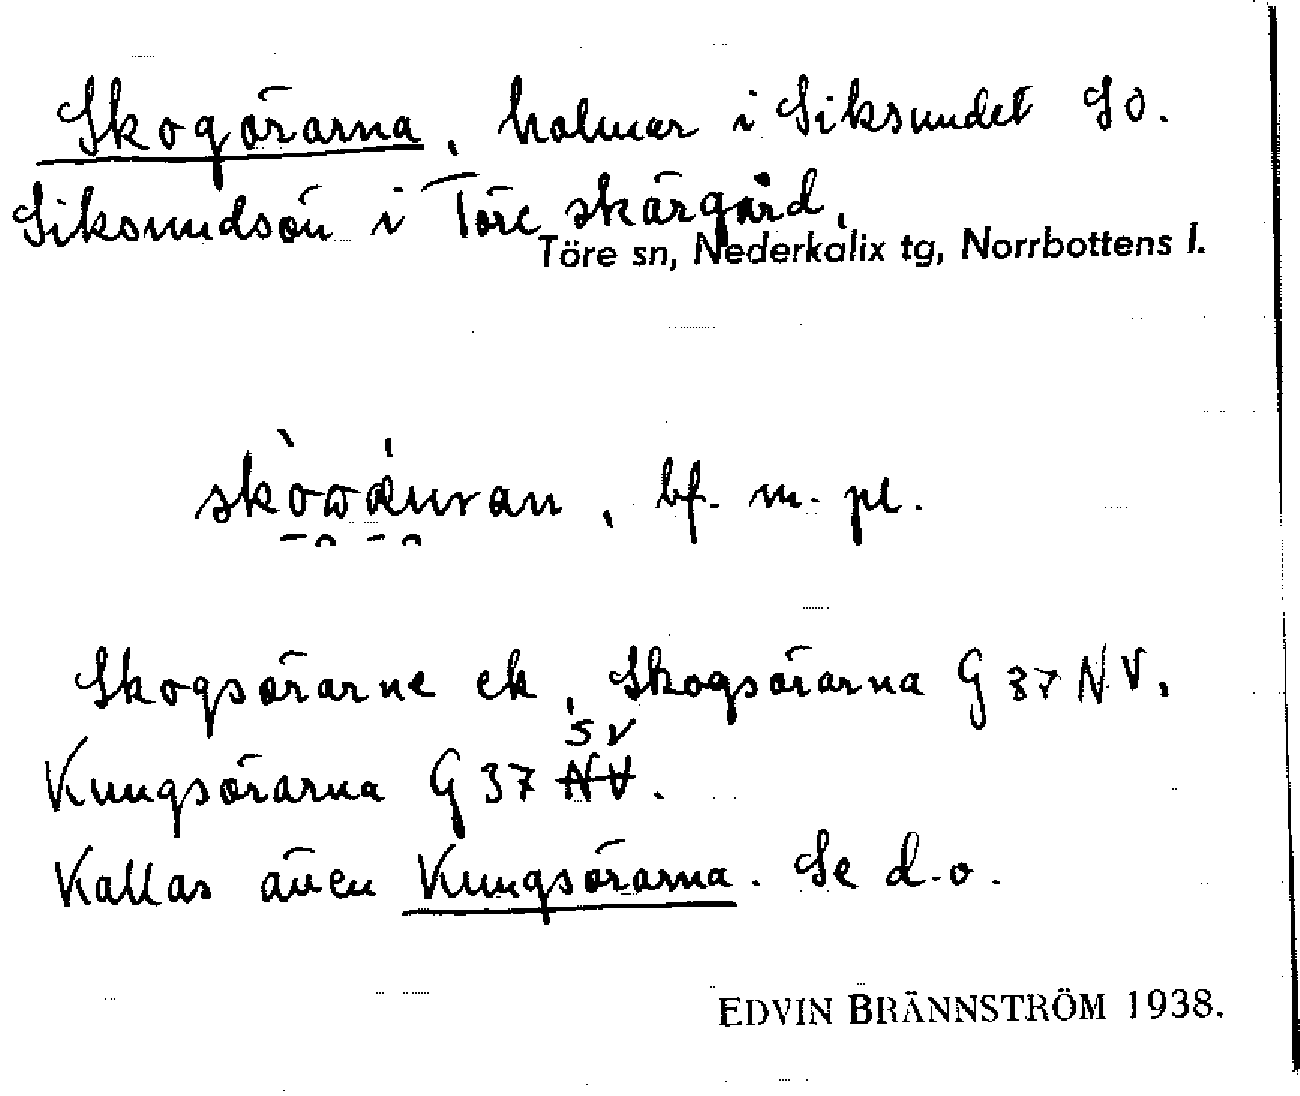 Skogörarna, holmar i Siksundet SO.
Siksundsön i Töre skärgård.
Töre sn, Nederkalix tg, Norrbottens l.
bf. m. pl.
Skogsörarne ek, Skogsörarna G 37 NV,
SV
Kungsörarna G 37 NV.
Kallas även Kungsörarna. Se d.o.
EDVIN BRÄNNSTRÖM 1938.